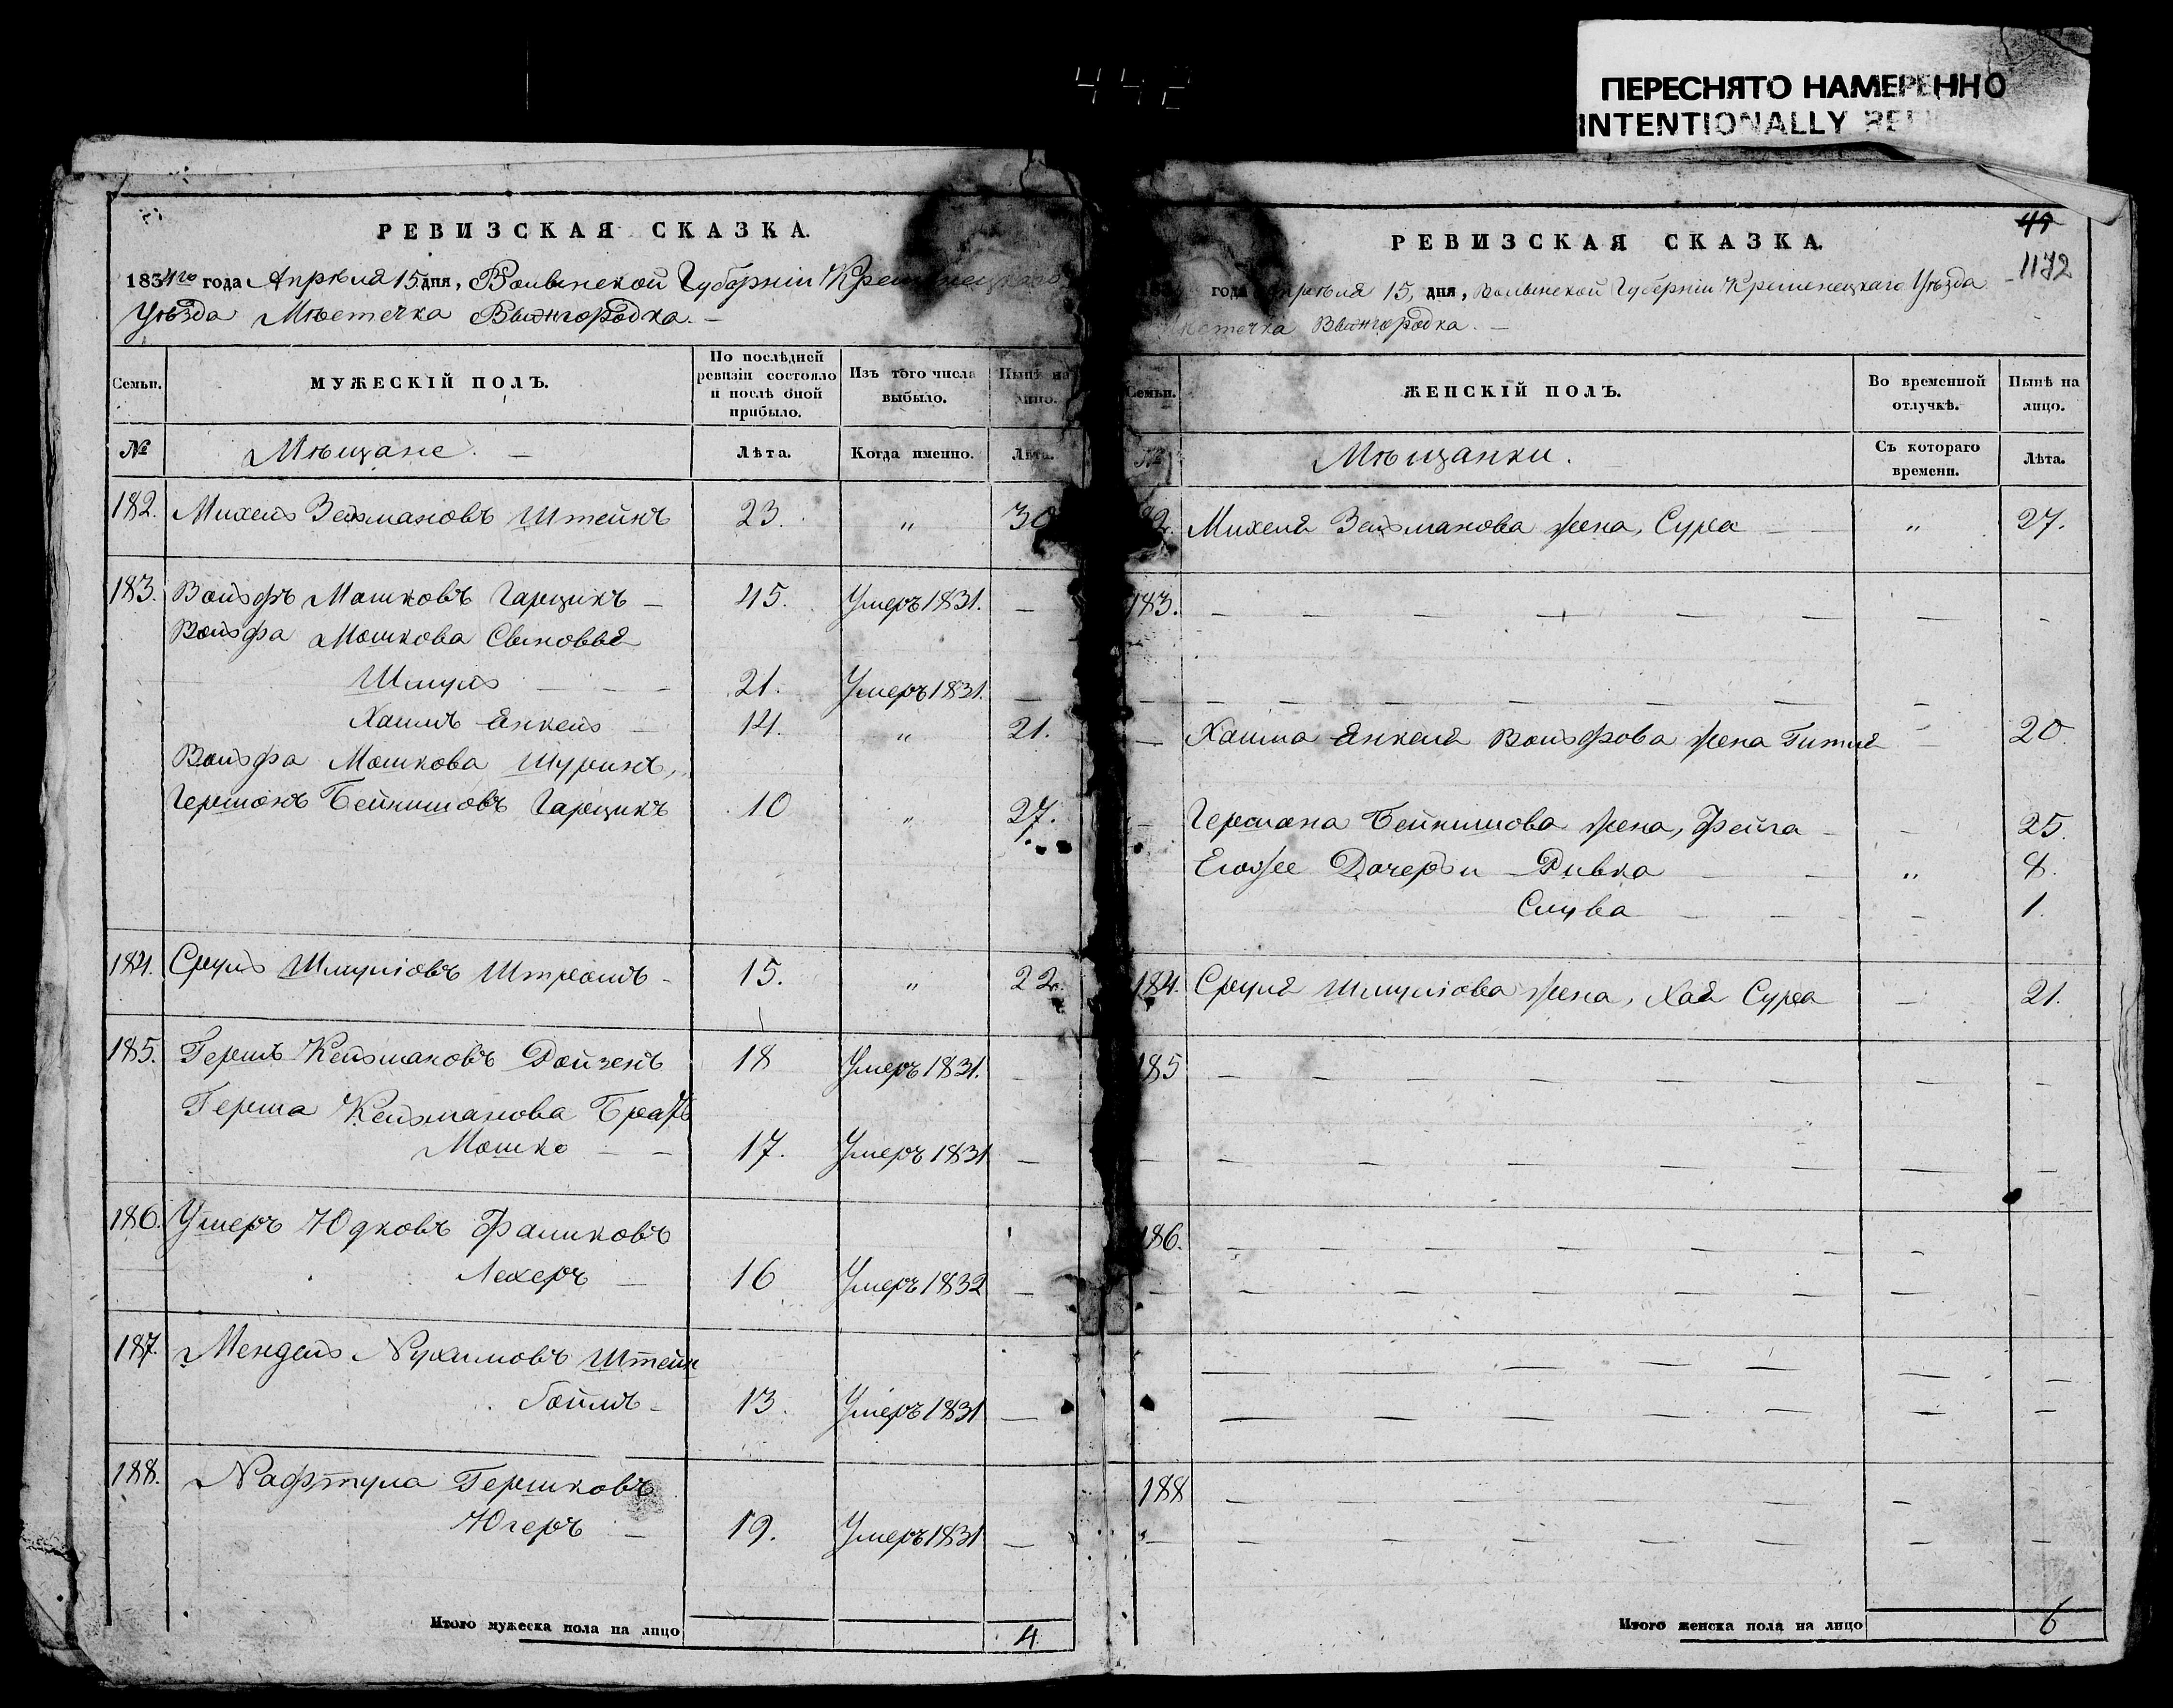 442
ПЕРЕСНЯТО НАМЕРЕННО
INTENTIONALLY
РЕВИЗСКАЯ СКАЗКА.
1834го года Апрѣля 15 дня, Волынской Губерніи Кременецкаго
Уѣзда Мѣстечка Вышгородка. –
Семьи. МУЖЕСКІЙ ПОЛЪ. По послѣдней ревизіи состояло и послѣ оной прибыло. Изъ того числа выбыло. Нынѣ на лицо.
№ Мѣщане. – Лѣта. Когда именно. Лѣта.
182. Михель Зельмановъ Штейнъ 23. „ 30
183. Вольфъ Мошковъ Гарцикъ – 45. Умеръ 1831. –
Вольфа Мошкова Сыновья
Шмуль – – – 21. Умеръ 1831. –
Хаимъ Янкель – 14. „ 21.
Вольфа Мошкова Шуринъ,
Гершонъ Бейнишовъ Гарцикъ 10 „ 27.
184. Сруль Шмуліовъ Штромъ – 15. „ 22.
185. Гершъ Кельмановъ Дойзенъ 18 Умеръ 1831. –
Герша Кельманова Братъ
Мошко – – 17. Умеръ 1831 –
186. Умеръ Юдковъ Фалиховъ
Лехеръ – 16 Умеръ 1832 –
187. Мендель Нухимовъ Штейн
Гоймъ – 13. Умеръ 1831 –
188. Нафтула Гершковъ
Югеръ – 19. Умеръ 1831 –
Итого мужеска пола на лицо 4
РЕВИЗСКАЯ СКАЗКА.
49
1172
года Апрѣля 15, дня, Волынской Губерніи Кременецкаго Уѣзда
Мѣстечка Вышгородка. –
Семьи. ЖЕНСКІЙ ПОЛЪ. Во временной отлучкѣ. Нынѣ на лицо.
№ Мѣщанки. Съ котораго времени. Лѣта.
2. Михеля Зельманова жена, Сура – – „ 27.
183. – – – – – – – – –
– Хаима Янкеля Вольфова жена Гитля – 20.
– Гершона Бейнишова жена, Фейга – – 25.
Егожее Дочери Ривка – – „ 8.
Слува – – – – 1.
184. Сруля Шмуліова жена, Хая Сура – 21.
185 – – – – – – – – –
186. – – – – – – – –
188 – – – – – – –
Итого женска пола на лицо 6